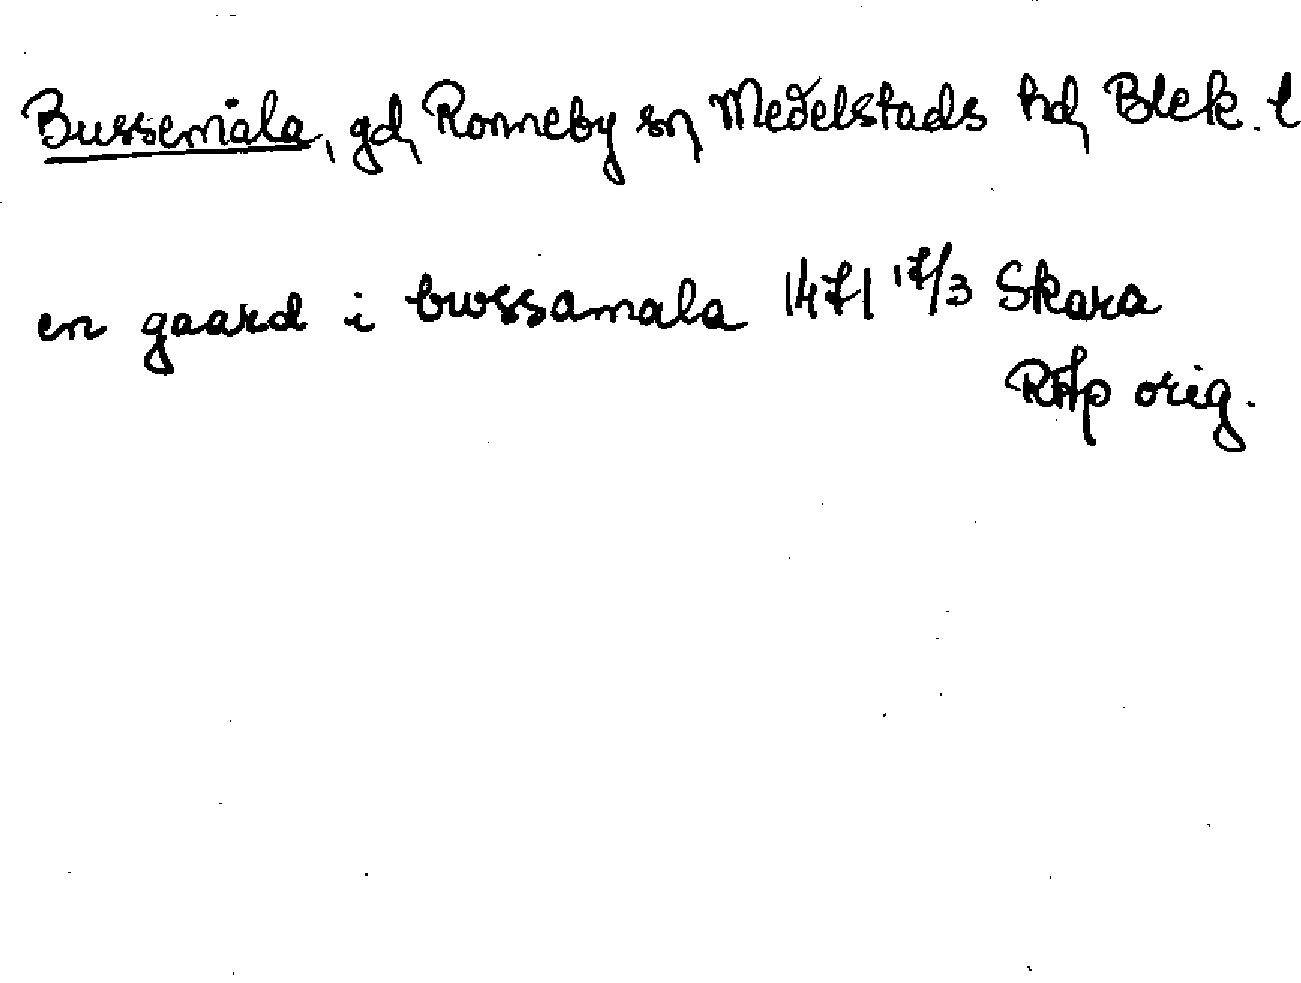 Bussemåla, gd, Ronneby sn, Medelstads hd, Blek. l
en gaard i bwssamala 1471 17/3 Skara
RAp orig.